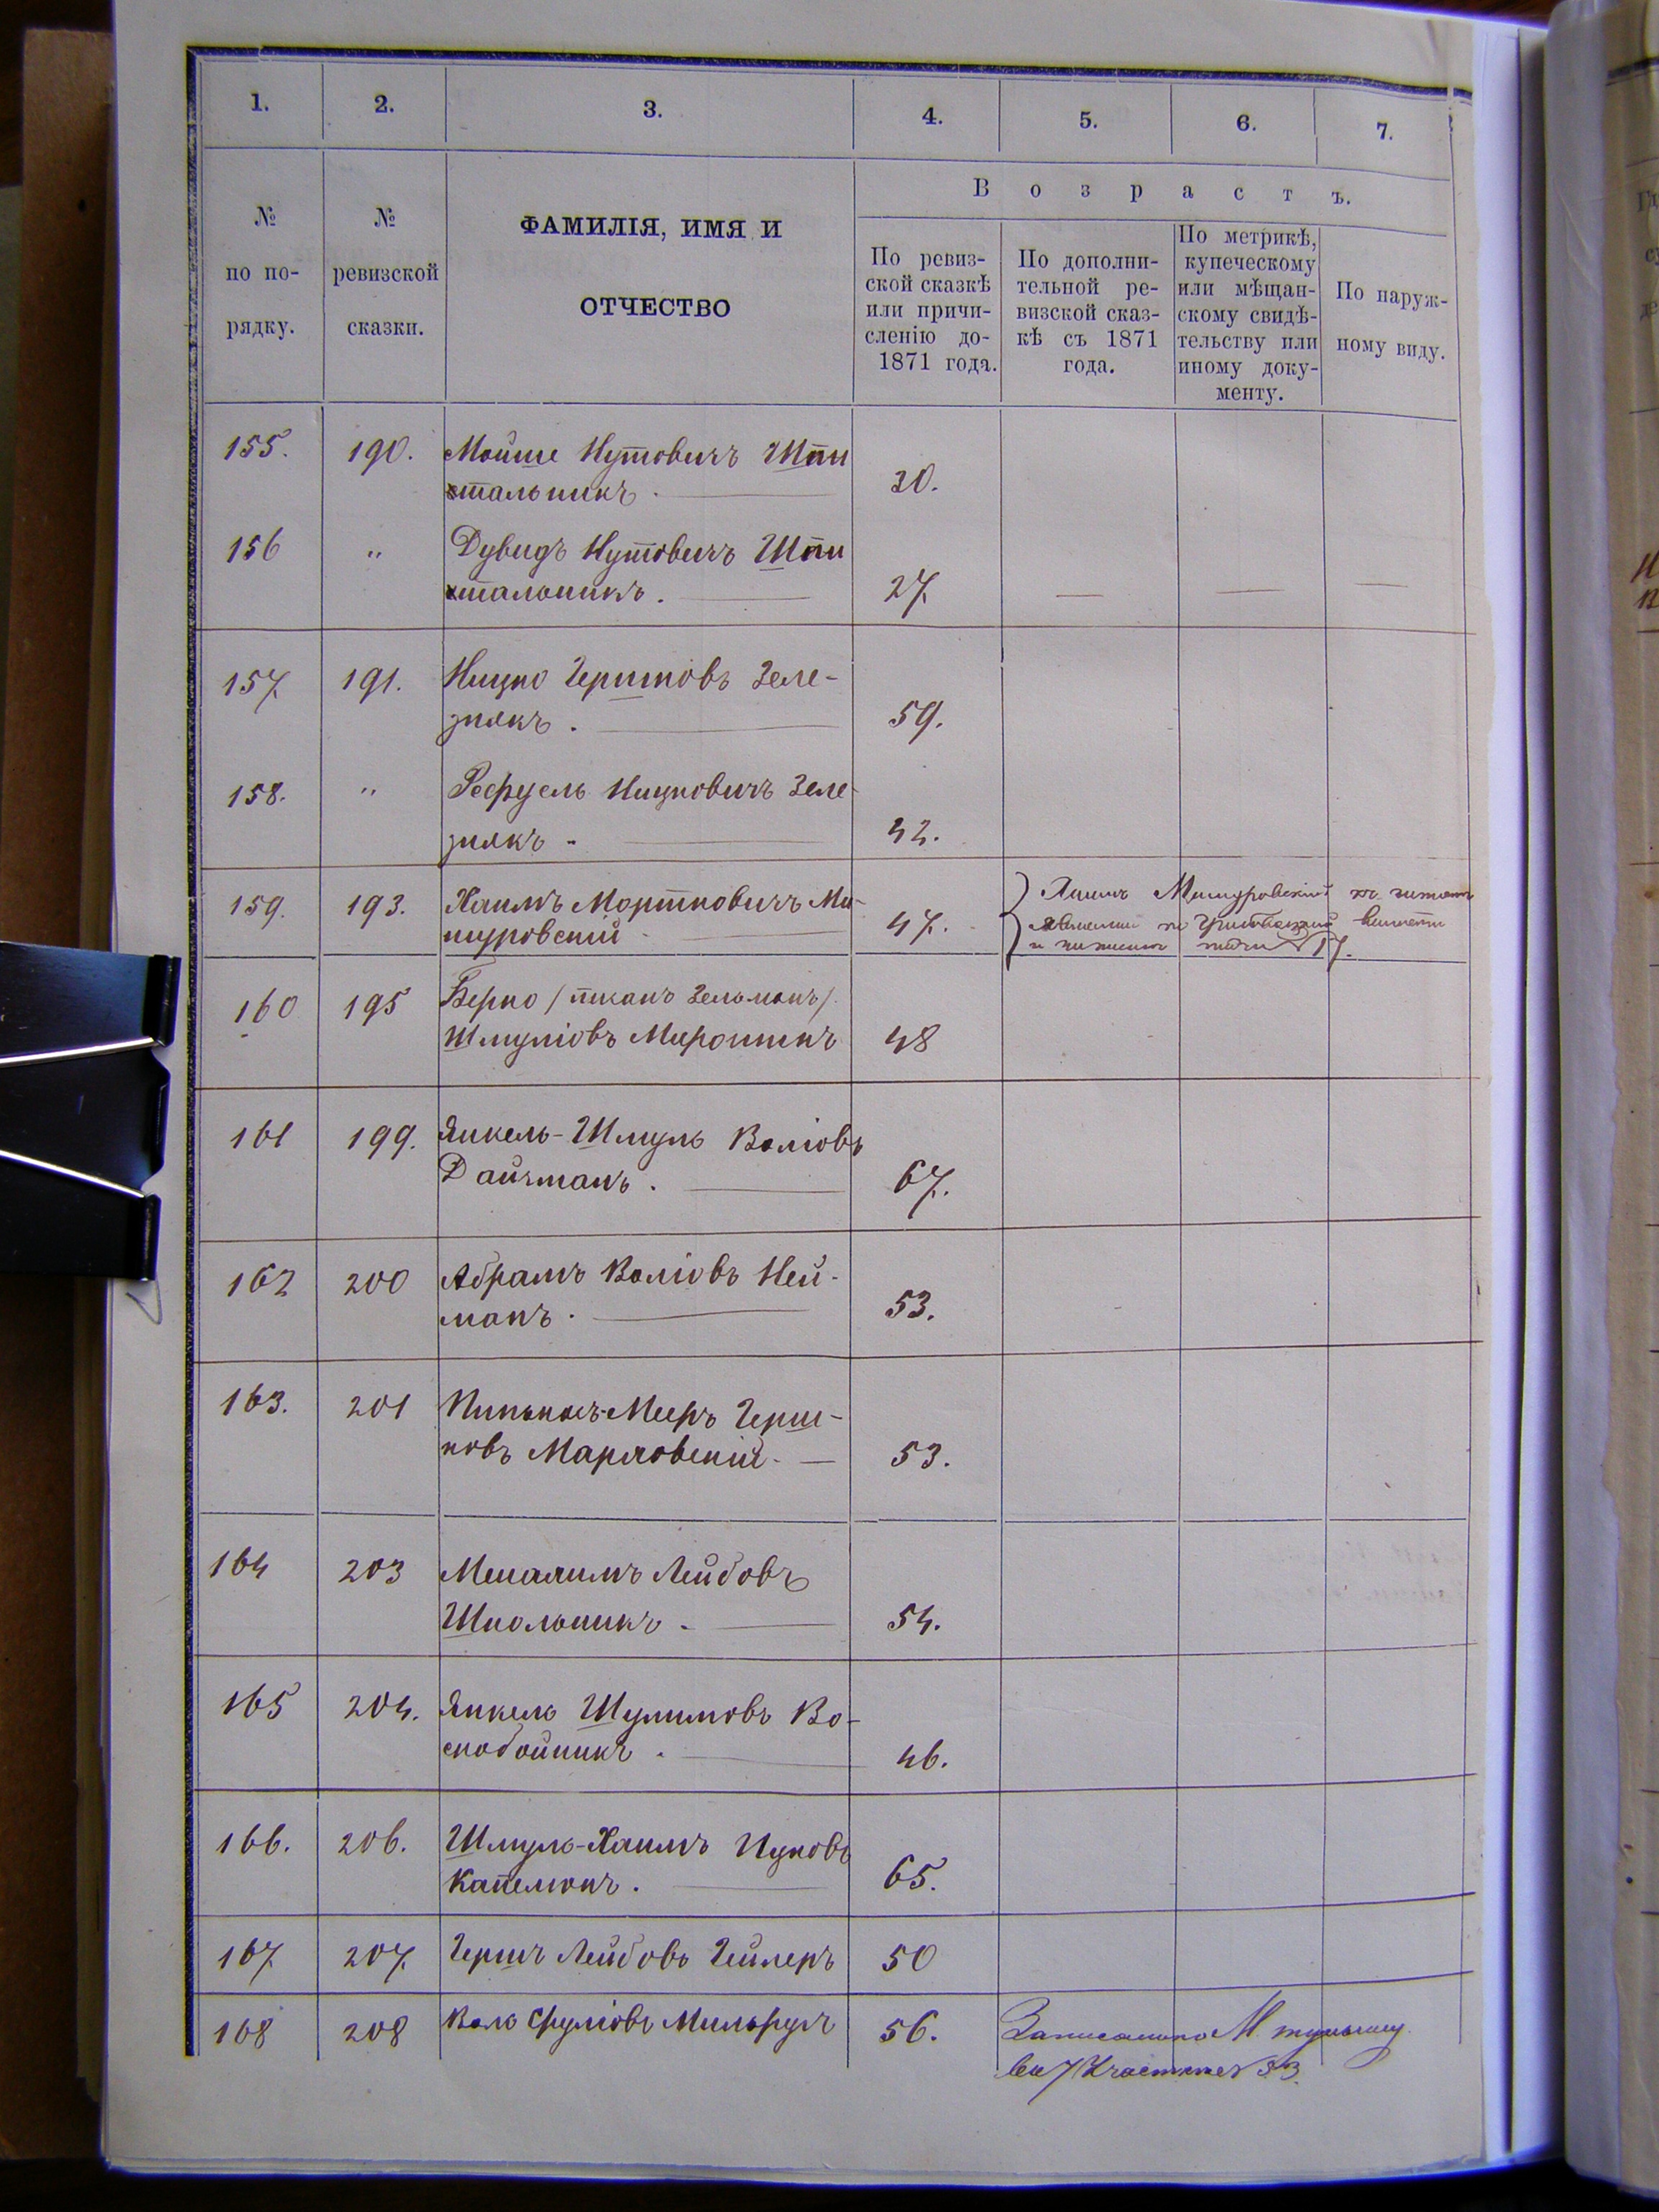 1. 2. 3. 4. 5. 6. 7.
№ по по-рядку.
№ ревизской сказки.
ФАМИЛІЯ, ИМЯ И
ОТЧЕСТВО
Возрастъ.
По ревиз-
ской сказкѣ
или причи-
сленію до-
1871 года.
По дополни-
тельной ре-
визской сказ-
кѣ съ 1871
года.
По метрикѣ,
купеческому
или мѣщан-
скому свидѣ-
тельству или
иному доку-
менту.
По наруж-
ному виду.
155. 190. Мойше Нутовичъ Шпи
тальникъ. 30.
156 " Дувидъ Нутовичъ Шпи
тальникъ. 27.
157. 191. Ицко Гершковъ Зеле-
знякъ. 59.
158. " Рефуель Ицковичъ Зеле-
знякъ - 42.
159. 193. Хаимъ Мортковичъ Ми-
шуровскій 47.
160 195 Берко / тканъ Зельманъ /
Шмуліовъ Мирошникъ 48
161 199. Янкель-Шмуль Воліовъ
Дайчманъ. 67.
162 200 Абрамъ Воліовъ Ней-
манъ. 53.
163. 201 Пинькасъ-Мееръ Герш-
ковъ Марловскій. 53.
164 203 Лейбовъ
Школьникъ - 54.
165 204. Янкель Шулимовъ Во-
скобойникъ. 46.
166. 206. Шмуль-Хаимъ Ицковъ
Капелюшъ. 65.
167. 207. Гершъ Лейбовъ Гейлеръ 50
168 208 Волъ Сруліовъ Мильрудъ 56. Записанъ по М.
во 7 Участке № 33.